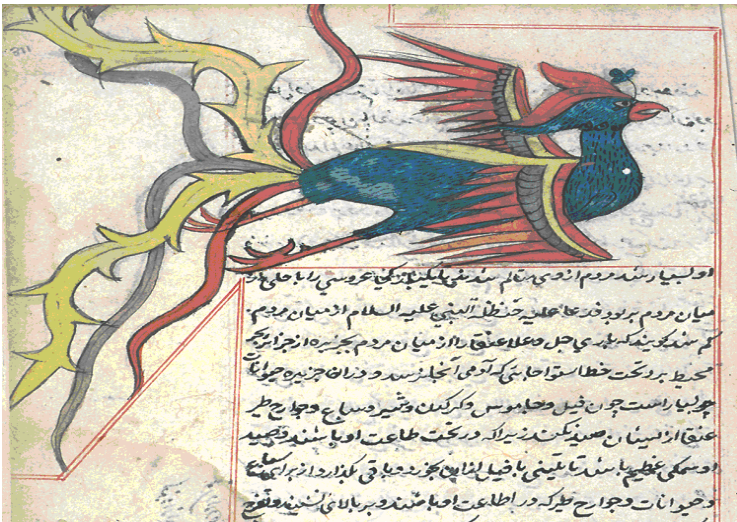 او بسیار شد مردم از وی متالم شدند عروسی را با حلی از
میان مردم بربود فدعا علیه حنظلة النبی علیه السلام از میان مردم
کم شد کویند که باری جل وعلا عنقا را از میان مردم بجزیره از جزایر بحر
محیط برد تحت خط استوا که آدمی آنجا نرسد و در ان جزیره حیوانات
بسیار است چون فیل و جاموس و کرکدن و شیر و سباع و جوارح طیر
عنقا از ایشان صید نکند زیرا که در تحت طاعت او باشند و صید
او سمکی عظیم باشد یا تنینی یا فیل بخورد و باقی بگذارد از برای سباع
و حیوانات و جوارح طیر که در اطاعت او باشند و بر بالای نشیند و تفرج